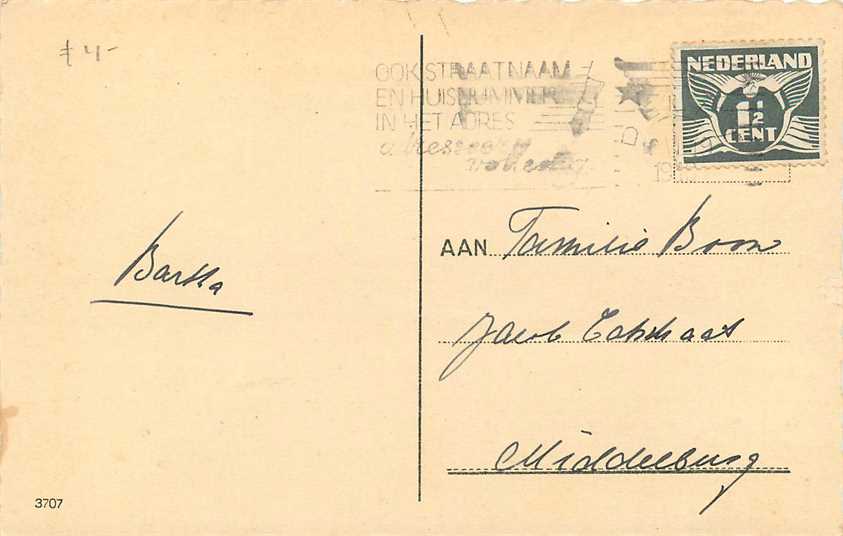 ƒ 4-
OOK STRAATNAAM
EN HUISNUMMER
IN HET ADRES
NEDERLAND
1½
CENT
19
Bartha
AAN Familie Boon
Jacob Catsstraat
Middelburg
3707